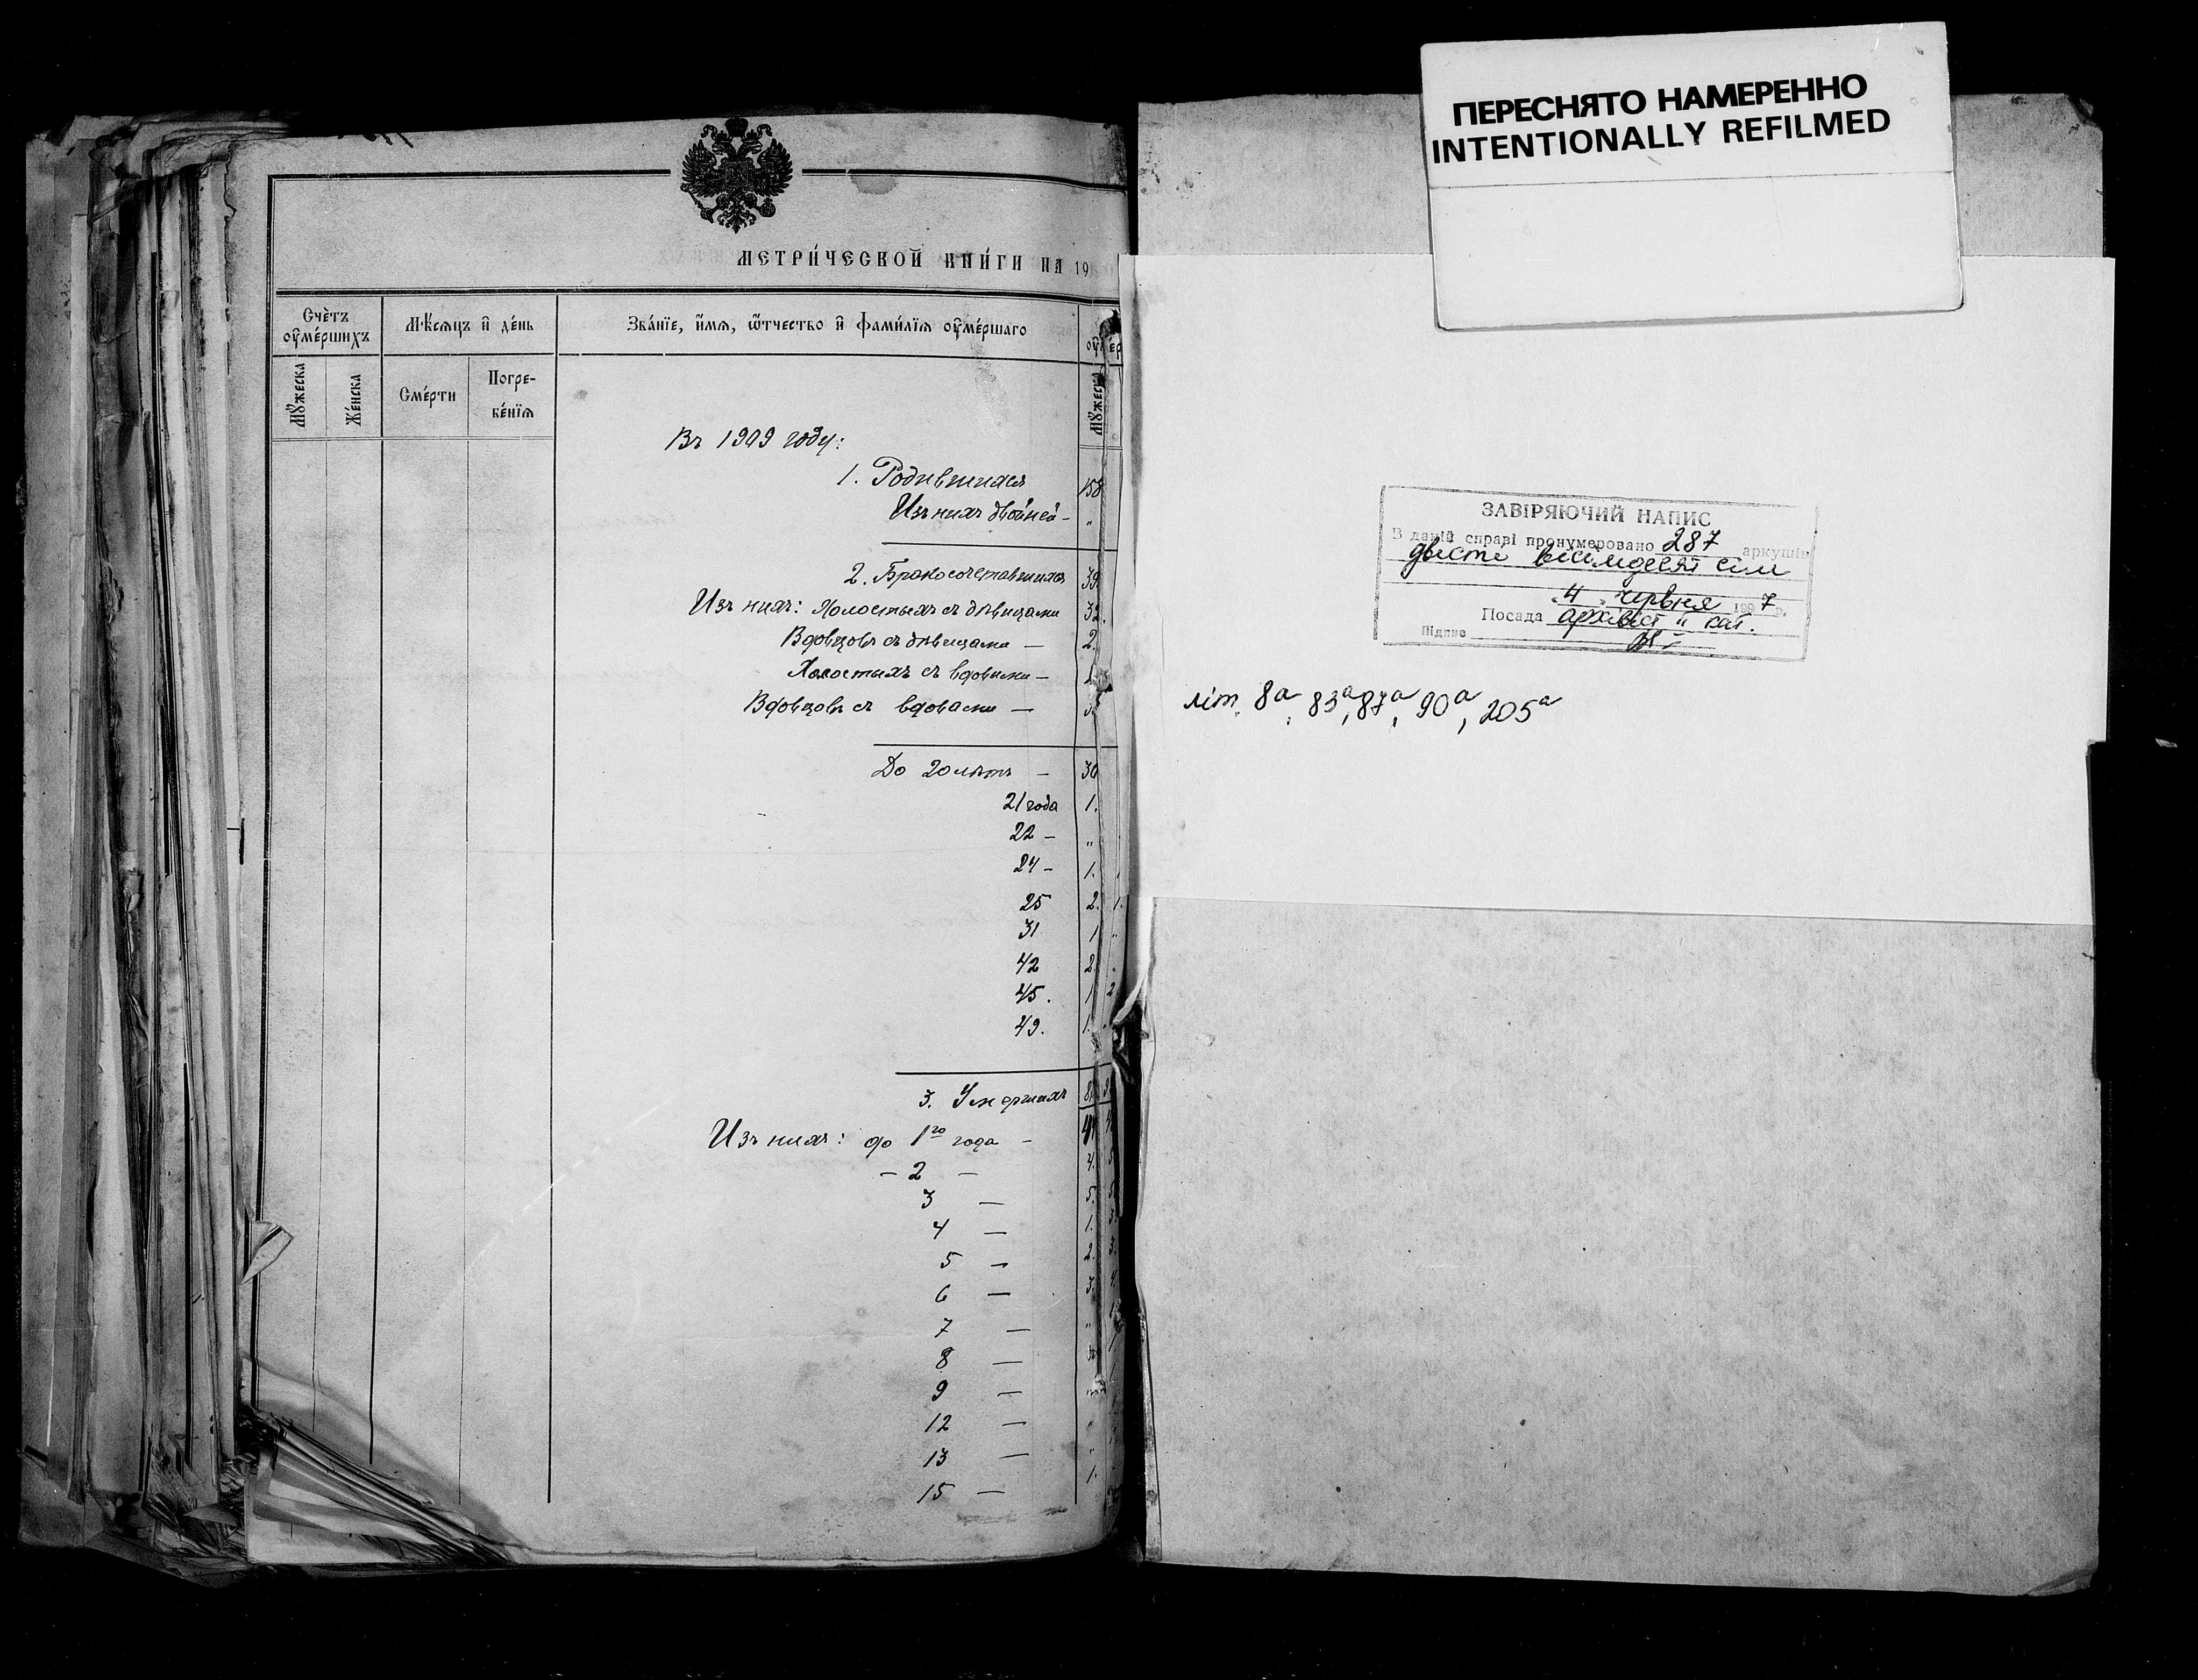 МЕТРИ́ЧЕСКОЙ КНИ́ГИ НА 19
Счѐтъ ᲂу҆ме́ршихъ
Мѣсяцъ и҆ де́нь
Зва́нїе, и҆́мя, ѿ́тчество и҆ фами́лїя ᲂу҆ме́ршаго
Мꙋ́жеска
Же́нска
Сме́рти
Погре-
бе́нїя
Мꙋ́жеска
Въ 1909 году:
1. Родившихся 158
Изъ нихъ двойней - "
2. Бракосочетавшихся 39
Изъ нихъ: Холостыхъ съ дѣвицами 32.
Вдовцовъ съ дѣвицами — 2.
Холостыхъ съ вдовами —
Вдовцовъ съ вдовами — 3.
До 20 лѣтъ — 30
21 года 1.
22 — "
24 — 1.
25 2. 1.
31 1 "
42 2.
45. 1 2
49. 1.
3. Умершихъ
Изъ нихъ: до 1го года -
— 2 — 4.
3 — 5. 5
4 — 1.
5 — 2. 3.
6 — 3. 4.
7 — "
8 —
9 —
12 — "
13 — "
15 — 1.
ПЕРЕСНЯТО НАМЕРЕННО
INTENTIONALLY REFILMED
ЗАВІРЯЮЧИЙ НАПИС
В даній справі пронумеровано 287 аркушів
двісті вісімдесят сім
"4" червня 1997 р.
Посада архівіст II кат.
Підпис
літ. 8а, 83а, 87а, 90а, 205а